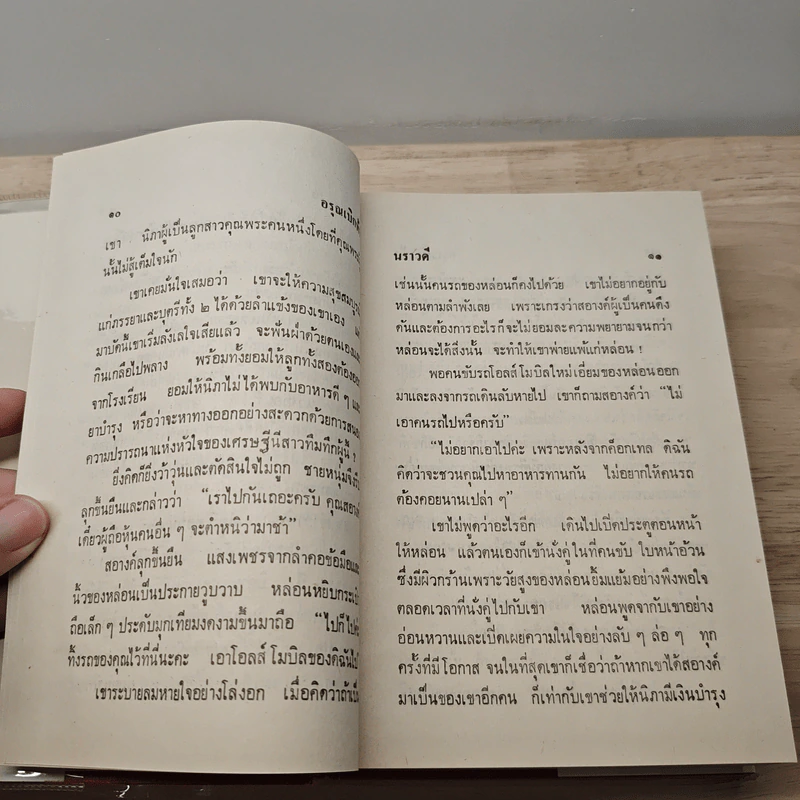 ๑๐ อรุณเบิก
เขา นิภาผู้เป็นลูกสาวคุณพระคนหนึ่งโดยที่คุณพระ
นั้นไม่สู้เต็มใจนัก
เขาเคยมั่นใจเสมอว่า เขาจะให้ความสุขสมบูรณ์
แก่ภรรยาและบุตรีทั้ง ๒ ได้ด้วยลำแข้งของเขาเอง
มาบัดนี้เขาเริ่มลังเลใจเสียแล้ว จะฟั่นฝ่าด้วยตนเอง
กินเกลือไปพลาง พร้อมทั้งยอมให้ลูกทั้งสองต้อง
จากโรงเรียน ยอมให้นิภาไม่ได้พบกับอาหารดี ๆ
ยาบำรุง หรือว่าจะหาทางออกอย่างสะดวกด้วยการสนอง
ความปรารถนาแห่งหัวใจของเศรษฐีนีสาวทึมทึกผู้นี้ ?
ยิ่งคิดก็ยิ่งว้าวุ่นและตัดสินใจไม่ถูก ชายหนุ่มจึง
ลุกขึ้นยืนและกล่าวว่า “เราไปกันเถอะครับ คุณสอางค์
เดี๋ยวผู้ถือหุ้นคนอื่น ๆ จะตำหนิว่ามาช้า”
สอางค์ลุกขึ้นยืน แสงเพชรจากลำคอข้อมือและ
นิ้วของหล่อนเป็นประกายวูบวาบ หล่อนหยิบกระเป๋า
ถือเล็ก ๆ ประดับมุกเทียมงดงามขึ้นมาถือ “ไปก็ไปค่ะ
ทิ้งรถของคุณไว้ที่นี่นะคะ เอาโอลส์โมบิลของดิฉัน
เขาระบายลมหายใจอย่างโล่งอก เมื่อคิดว่าถ้าเป็น
นราวดี ๑๑
เช่นนั้นคนรถของหล่อนก็คงไปด้วย เขาไม่อยากอยู่กับ
หล่อนตามลำพังเลย เพราะเกรงว่าสอางค์ผู้เป็นคนดึง
ดันและต้องการอะไรก็จะไม่ยอมละความพยายามจนกว่า
หล่อนจะได้สิ่งนั้น จะทำให้เขาพ่ายแพ้แก่หล่อน !
พอคนขับรถโอลส์โมบิลใหม่เอี่ยมของหล่อนออก
มาและลงจากรถเดินลับหายไป เขาก็ถามสอางค์ว่า “ไม่
เอาคนรถไปหรือครับ”
“ไม่อยากเอาไปค่ะ เพราะหลังจากค็อกเทล ดิฉัน
คิดว่าจะชวนคุณไปหาอาหารทานกัน ไม่อยากให้คนรถ
ต้องคอยนานเปล่า ๆ”
เขาไม่พูดว่าอะไรอีก เดินไปเปิดประตูตอนหน้า
ให้หล่อน แล้วตนเองก็เข้านั่งคู่ในที่คนขับ ใบหน้าอ้วน
ซึ่งมีผิวกร้านเพราะวัยสูงของหล่อนยิ้มแย้มอย่างพึงพอใจ
ตลอดเวลาที่นั่งคู่ไปกับเขา หล่อนพูดจากับเขาอย่าง
อ่อนหวานและเปิดเผยความในใจอย่างลับ ๆ ล่อ ๆ ทุก
ครั้งที่มีโอกาส จนในที่สุดเขาก็เชื่อว่าถ้าหากเขาได้สอางค์
มาเป็นของเขาอีกคน ก็เท่ากับเขาช่วยให้นิภามีเงินบำรุง